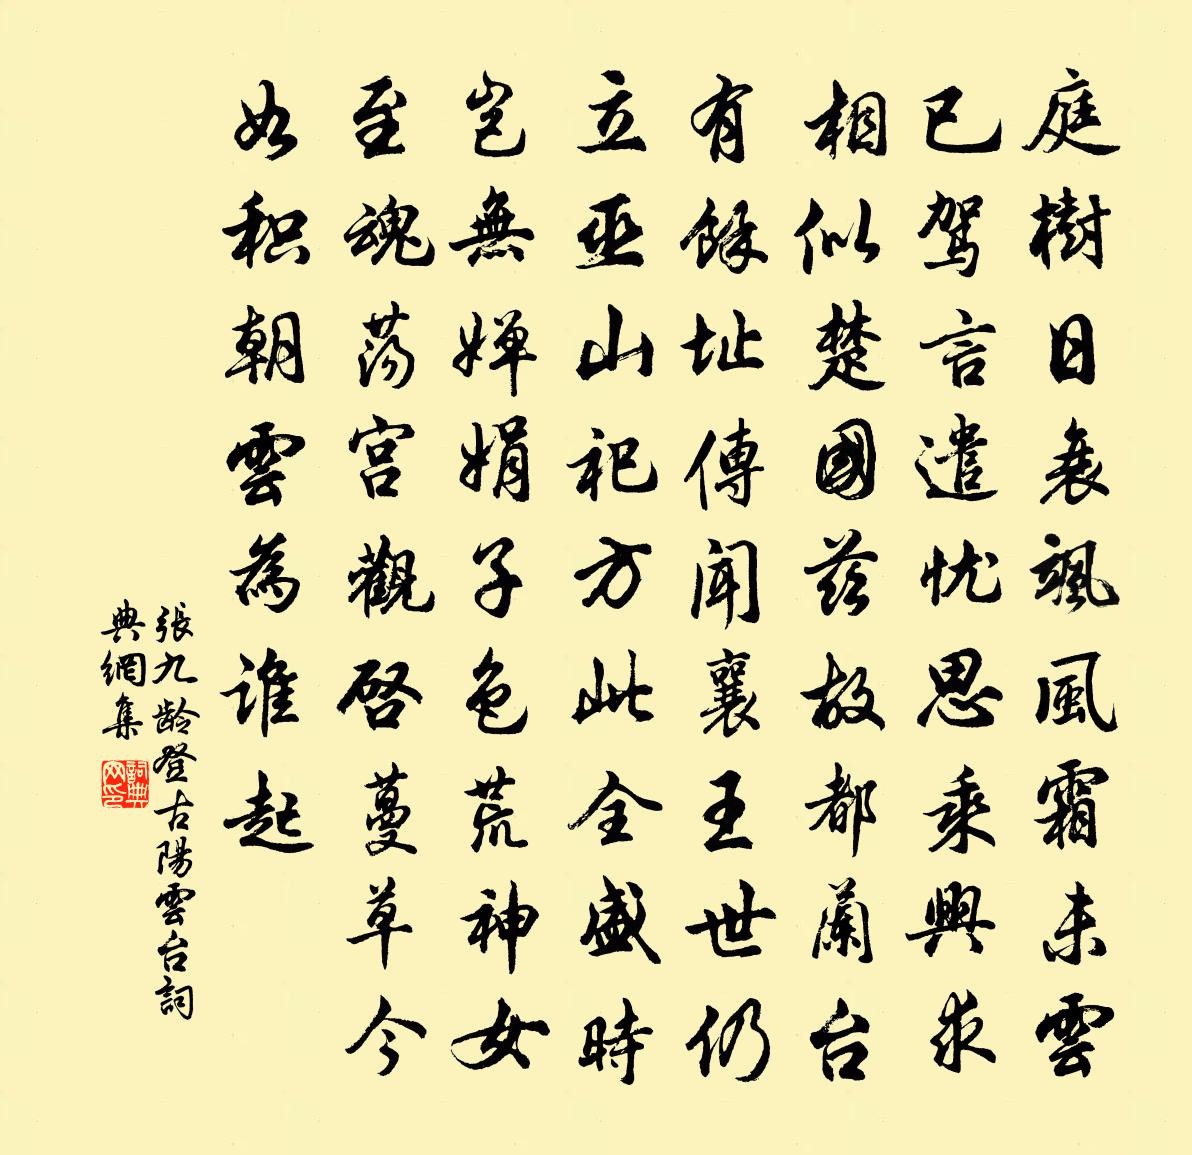 庭樹日衰颯風霜未雲
已駕言遣忧思乘興求
相似楚國茲故都蘭台
有餘址傳聞襄王世仍
立巫山祀方此全盛時
豈無嬋娟子色荒神女
至魂蕩宮觀啓蔓草今
如积朝雲為誰起
張九齡登古陽雲台詞
典網集
詞典
网印